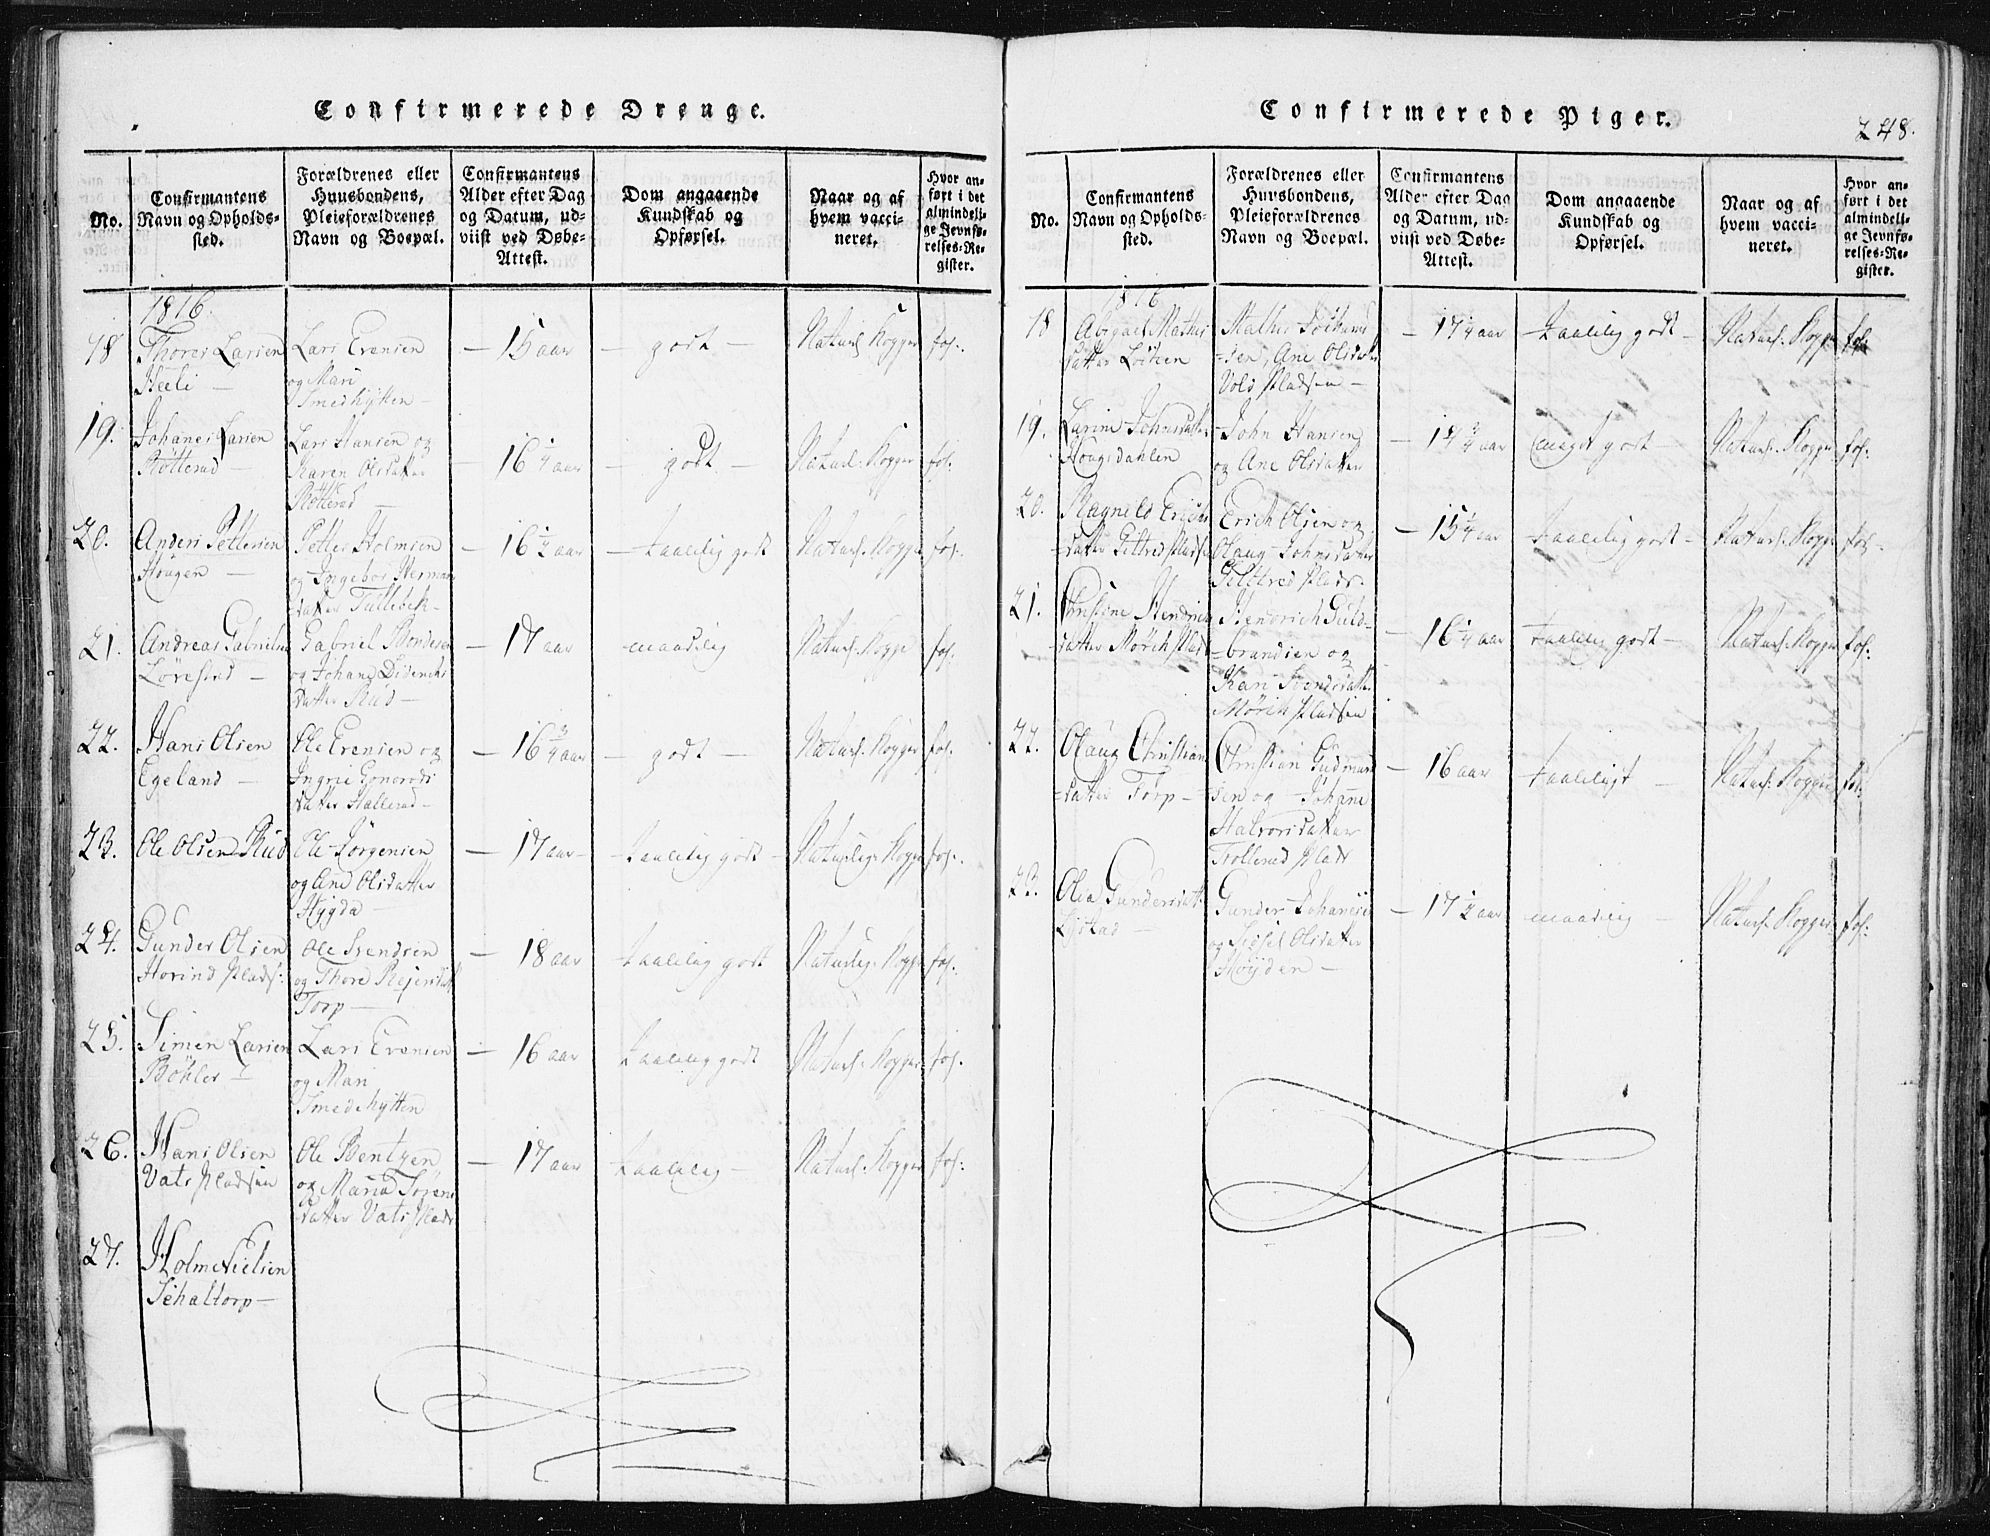 Confirmerede Drenge.
No.
Confirmantens
Navn og Opholds-
sted.
Forældrenes eller
Huusbondens,
Pleieforældrenes
Navn og Boepæl.
Confirmantens
Alder efter Dag
og Datum, ud-
viist ved Døbe-
Attest.
Dom angaaende
Kundskab og
Opførsel.
Naar og af
hvem vacci-
neret.
Hvor an-
ført i det
almindeli-
ge Jevnfø-
relses-Re-
gister.
1816.
18
Thores Larsen
Heeli —
Lars Evensen
og Mari
Smedhytten —
— 15 aar
— godt —
Naturl. Kopper
fol:
19.
Johanes Larsen
Røtterud —
Lars Hansen og
Karen Olsdatter
Røtterud —
— 16 1/4 aar
— godt —
Naturl. Kopper
fol:
20.
Anders Pettersen
Hougen —
Petter Holmsen
og Ingebor Herman
datter Tullebek —
— 16 1/2 aar
— taalelig godt
Naturl. Kopper
fol:
21.
Andreas Gabrielsen
Lørestad —
Gabriel Bendesen
og Johane Diderichs
datter Rud —
— 17 aar
maadelig
Naturl. Koppe
fol:
22.
Hans Olsen
Egeland —
Ole Evensen og
Ingrie Gonorods
datter Hallerud —
— 16 3/4 aar
— godt —
Naturl. Kopper
fol:
23.
Ole Olsen Rud
Ole Jørgensen
og Ane Olsdatter
Hygda —
— 17 aar —
taalelig godt —
Naturlig. Kopper
fol:
24.
Gunder Olsen
Horind Plads:
Ole Svendsen
og Thore Rejersdatt
Torp —
— 18 aar
taalelig godt
Naturlig. Kopper
fol:
25.
Simen Larsen
Böhler —
Lars Evensen
og Mari
Smedehytten
— 16 aar
taalelig godt
Naturl. Kopper
fol.
26.
Hans Olsen
Vats Pladsen
Ole Bentzen
og Maria Sörens
datter Vats Plads
— 17 aar
taalelig —
Naturl. Kopper
fol:
27.
Holm Nielsen
Schaltorp —
Confirmerede Piger.
248.
No.
Confirmantens
Navn og Opholds-
sted.
Forældrenes eller
Huusbondens,
Pleieforældrenes
Navn og Boepæl.
Confirmantens
Alder efter Dag
og Datum, ud-
viist ved Døbe-
Attest.
Dom angaaende
Kundskab og
Opførsel.
Naar og af
hvem vacci-
neret.
Hvor an-
ført i det
almindeli-
ge Jevnfø-
relses-Re-
gister.
1816
18
Abigael Mathis
datter Løkken
Mathis Jochum
sen, Ane Olsdatter
Vold Pladsen —
— 17 1/4 aar
taalelig godt —
Naturl. Kopper
fol:
19.
Larine Johnsdatter
Hougsdahlen
John Hansen
og Ane Olsdatter
— 14 3/4 aar
meget godt —
Naturl. Kopper
fol:
20.
Ragnild Erichs
datter Giltred Plads
Erich Olsen og
Olaug Johnsdatter
Giltred Plads.
— 15 1/4 aar
taalelig godt —
Naturl. Kopper
fol:
21.
Christine Hendrics
datter Mørch Plads
Hendrich Guld-
brandsen og
Kari Svendsdatter
Mørch Pladsen
— 16 1/4 aar
taalelig godt —
Naturl. Kopper
fol:
22.
Olaug Christian
datter Torp —
Christian Gudmun
sen og Johanne
Halvorsdatter
Trollerud Plads
— 16 aar
taaleligt —
Naturl. Kopper
fol:
23.
Olea Gundersdat.
Lystad —
Gunder Johanese
og Sidsel Olsdatter
Høyden —
— 17 1/2 aar
maadelig —
Naturl. Kopper
fol: